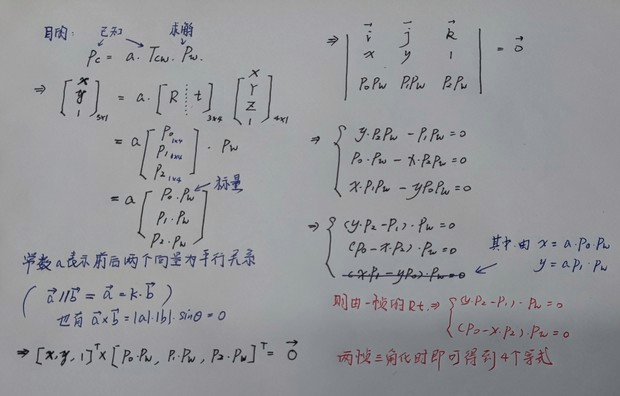 目的: 已知 求解
Pc = a · Tcw · Pw.
⇒ [x y 1]3x1 = a · [R ⋮ t]3x4 [X Y Z 1]4x1
= a [P0 1x4 P1 1x4 P2 1x4] · Pw
= a [P0·Pw P1·Pw P2·Pw] 标量
常数a表示前后两个向量为平行关系
( a⃗ // b⃗ = a⃗ = k·b⃗
也有 a⃗ × b⃗ = |a|·|b|·sinθ = 0 )
⇒ [x, y, 1]ᵀ × [P0·Pw, P1·Pw, P2·Pw]ᵀ = 0⃗
⇒ | i⃗ j⃗ k⃗
x y 1
P0Pw P1Pw P2Pw | = 0⃗
⇒ { y·P2Pw − P1Pw = 0
P0·Pw − x·P2Pw = 0
x·P1Pw − yP0Pw = 0
⇒ { (y·P2 − P1)·Pw = 0
(P0 − x·P2)·Pw = 0
(x·P1 − yP0)·Pw = 0
其中由 x = a·P0·Pw
y = aP1·Pw
则由一帧的Rt. ⇒ { (y·P2 − P1)·Pw = 0
(P0 − x·P2)·Pw = 0
两帧三角化时即可得到4个等式